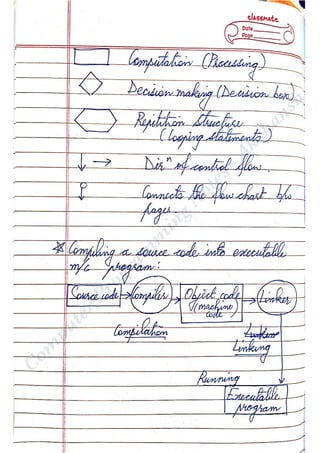 classmate
Date
Page
Computation (Processing)
Decision making (Decision box)
Repitition structure
(looping statements)
Dirⁿ of control flow.
Connects the flow chart b/w
pages
* Compiling a source code into executable
m/c program:
Source code → Compiler → Object code (machine code) → Linker
Compilation
Linking
Running
Executable
program